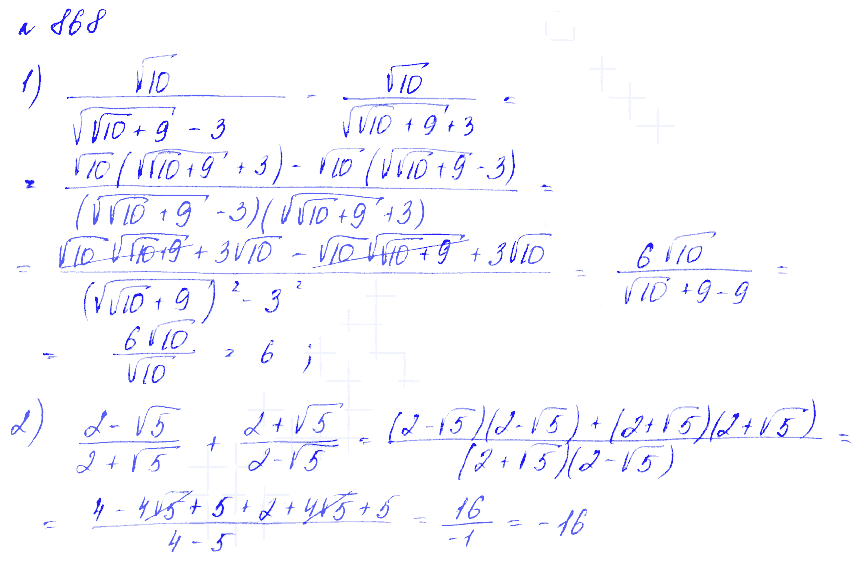 № 868
1) \frac{\sqrt{10}}{\sqrt{\sqrt{10}+9}-3} - \frac{\sqrt{10}}{\sqrt{\sqrt{10}+9}+3} =
= \frac{\sqrt{10}(\sqrt{\sqrt{10}+9}+3)-\sqrt{10}(\sqrt{\sqrt{10}+9}-3)}{(\sqrt{\sqrt{10}+9}-3)(\sqrt{\sqrt{10}+9}+3)} =
= \frac{\sqrt{10}\sqrt{\sqrt{10}+9}+3\sqrt{10}-\sqrt{10}\sqrt{\sqrt{10}+9}+3\sqrt{10}}{(\sqrt{\sqrt{10}+9})^2-3^2} = \frac{6\sqrt{10}}{\sqrt{10}+9-9} =
= \frac{6\sqrt{10}}{\sqrt{10}} = 6 ;
2) \frac{2-\sqrt{5}}{2+\sqrt{5}} + \frac{2+\sqrt{5}}{2-\sqrt{5}} = \frac{(2-\sqrt{5})(2-\sqrt{5})+(2+\sqrt{5})(2+\sqrt{5})}{(2+\sqrt{5})(2-\sqrt{5})} =
= \frac{4-4\sqrt{5}+5+2+4\sqrt{5}+5}{4-5} = \frac{16}{-1} = -16